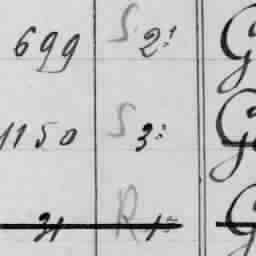 699 S 2: G
1150 S 3: G
31 R 1= G